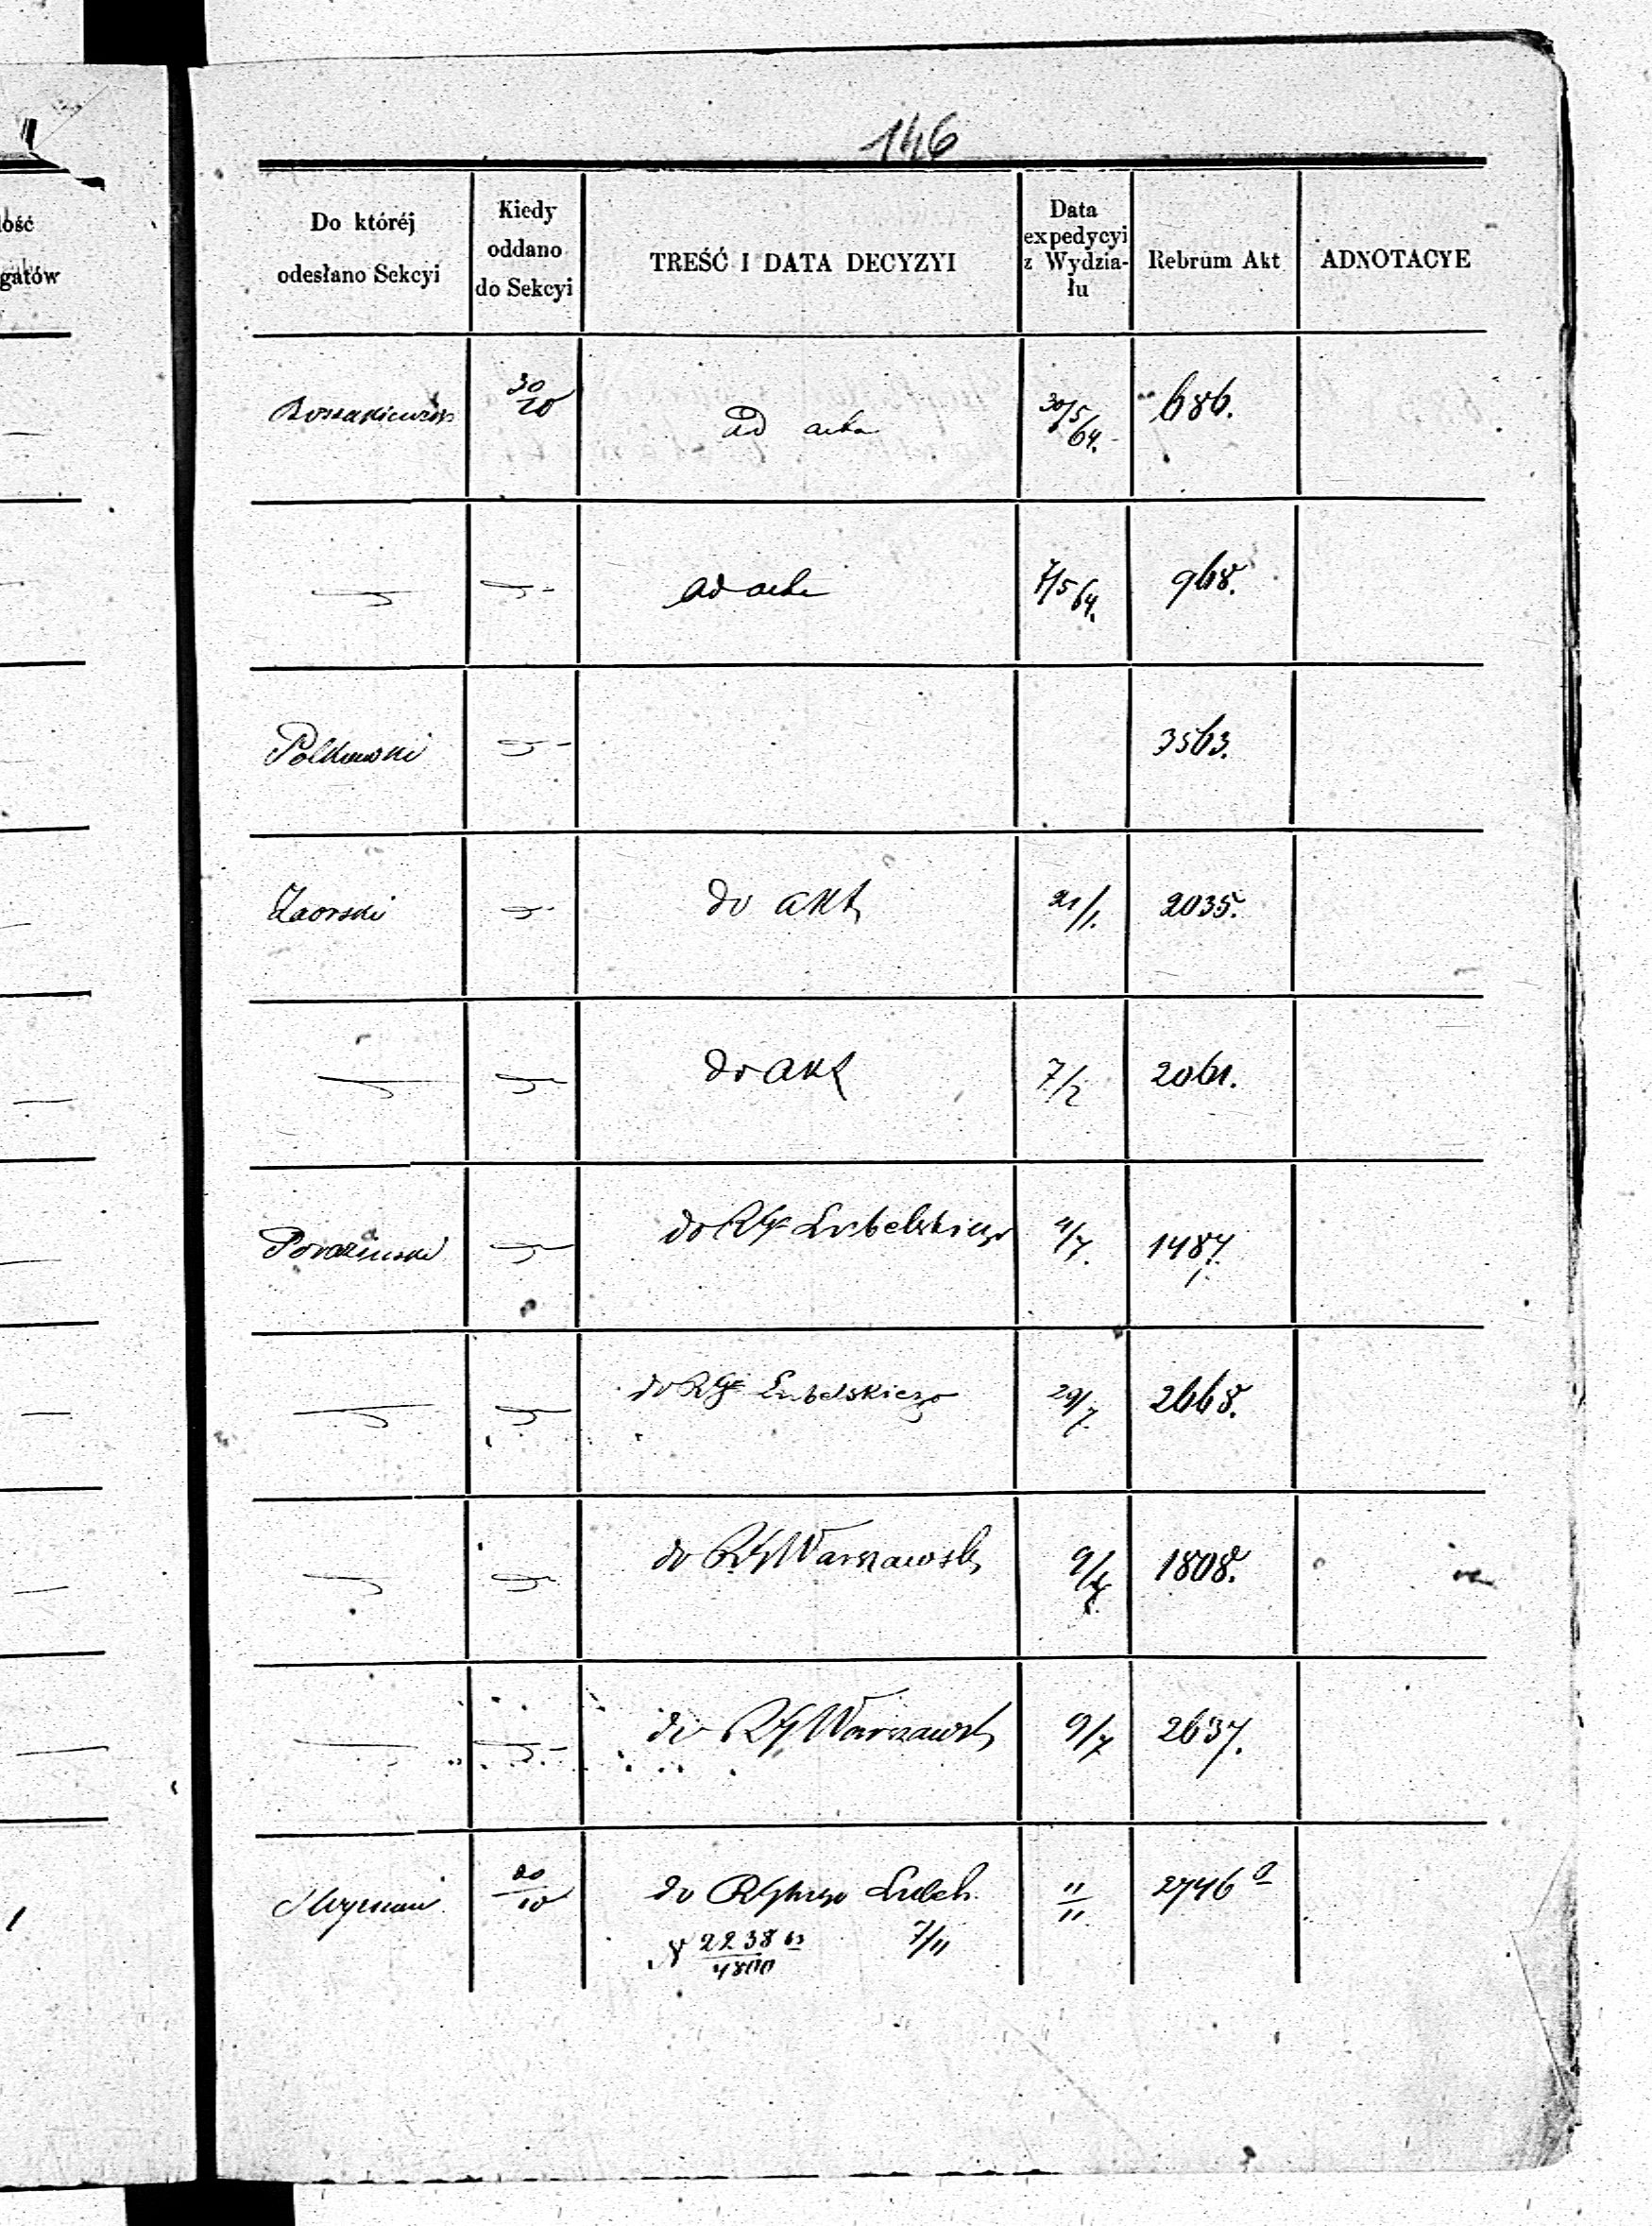 146
łość
gatów
Do któréj
odesłano Sekcyi
Kiedy
oddano
do Sekcyi
TREŚĆ I DATA DECYZYI
Data
expedycyi
z Wydzia-
łu
Rebrum Akt
ADNOTACYE
30/10
ad acta
30/5 64.
686.
ad acta
7/5 64.
968.
Polkowski
3563.
Zaorski
do akt
21/1.
2035.
do akt
7/2
2061.
do RG Lubelskiego
4/7.
1487.
do RG Lubelskiego
29/7
2668.
do RG Warszawsk
9/
1808.
do RG Warszawsk
9/7
2637.
20/10
do Lubels.
11/11
2746 a
N 2238/4800 7/11